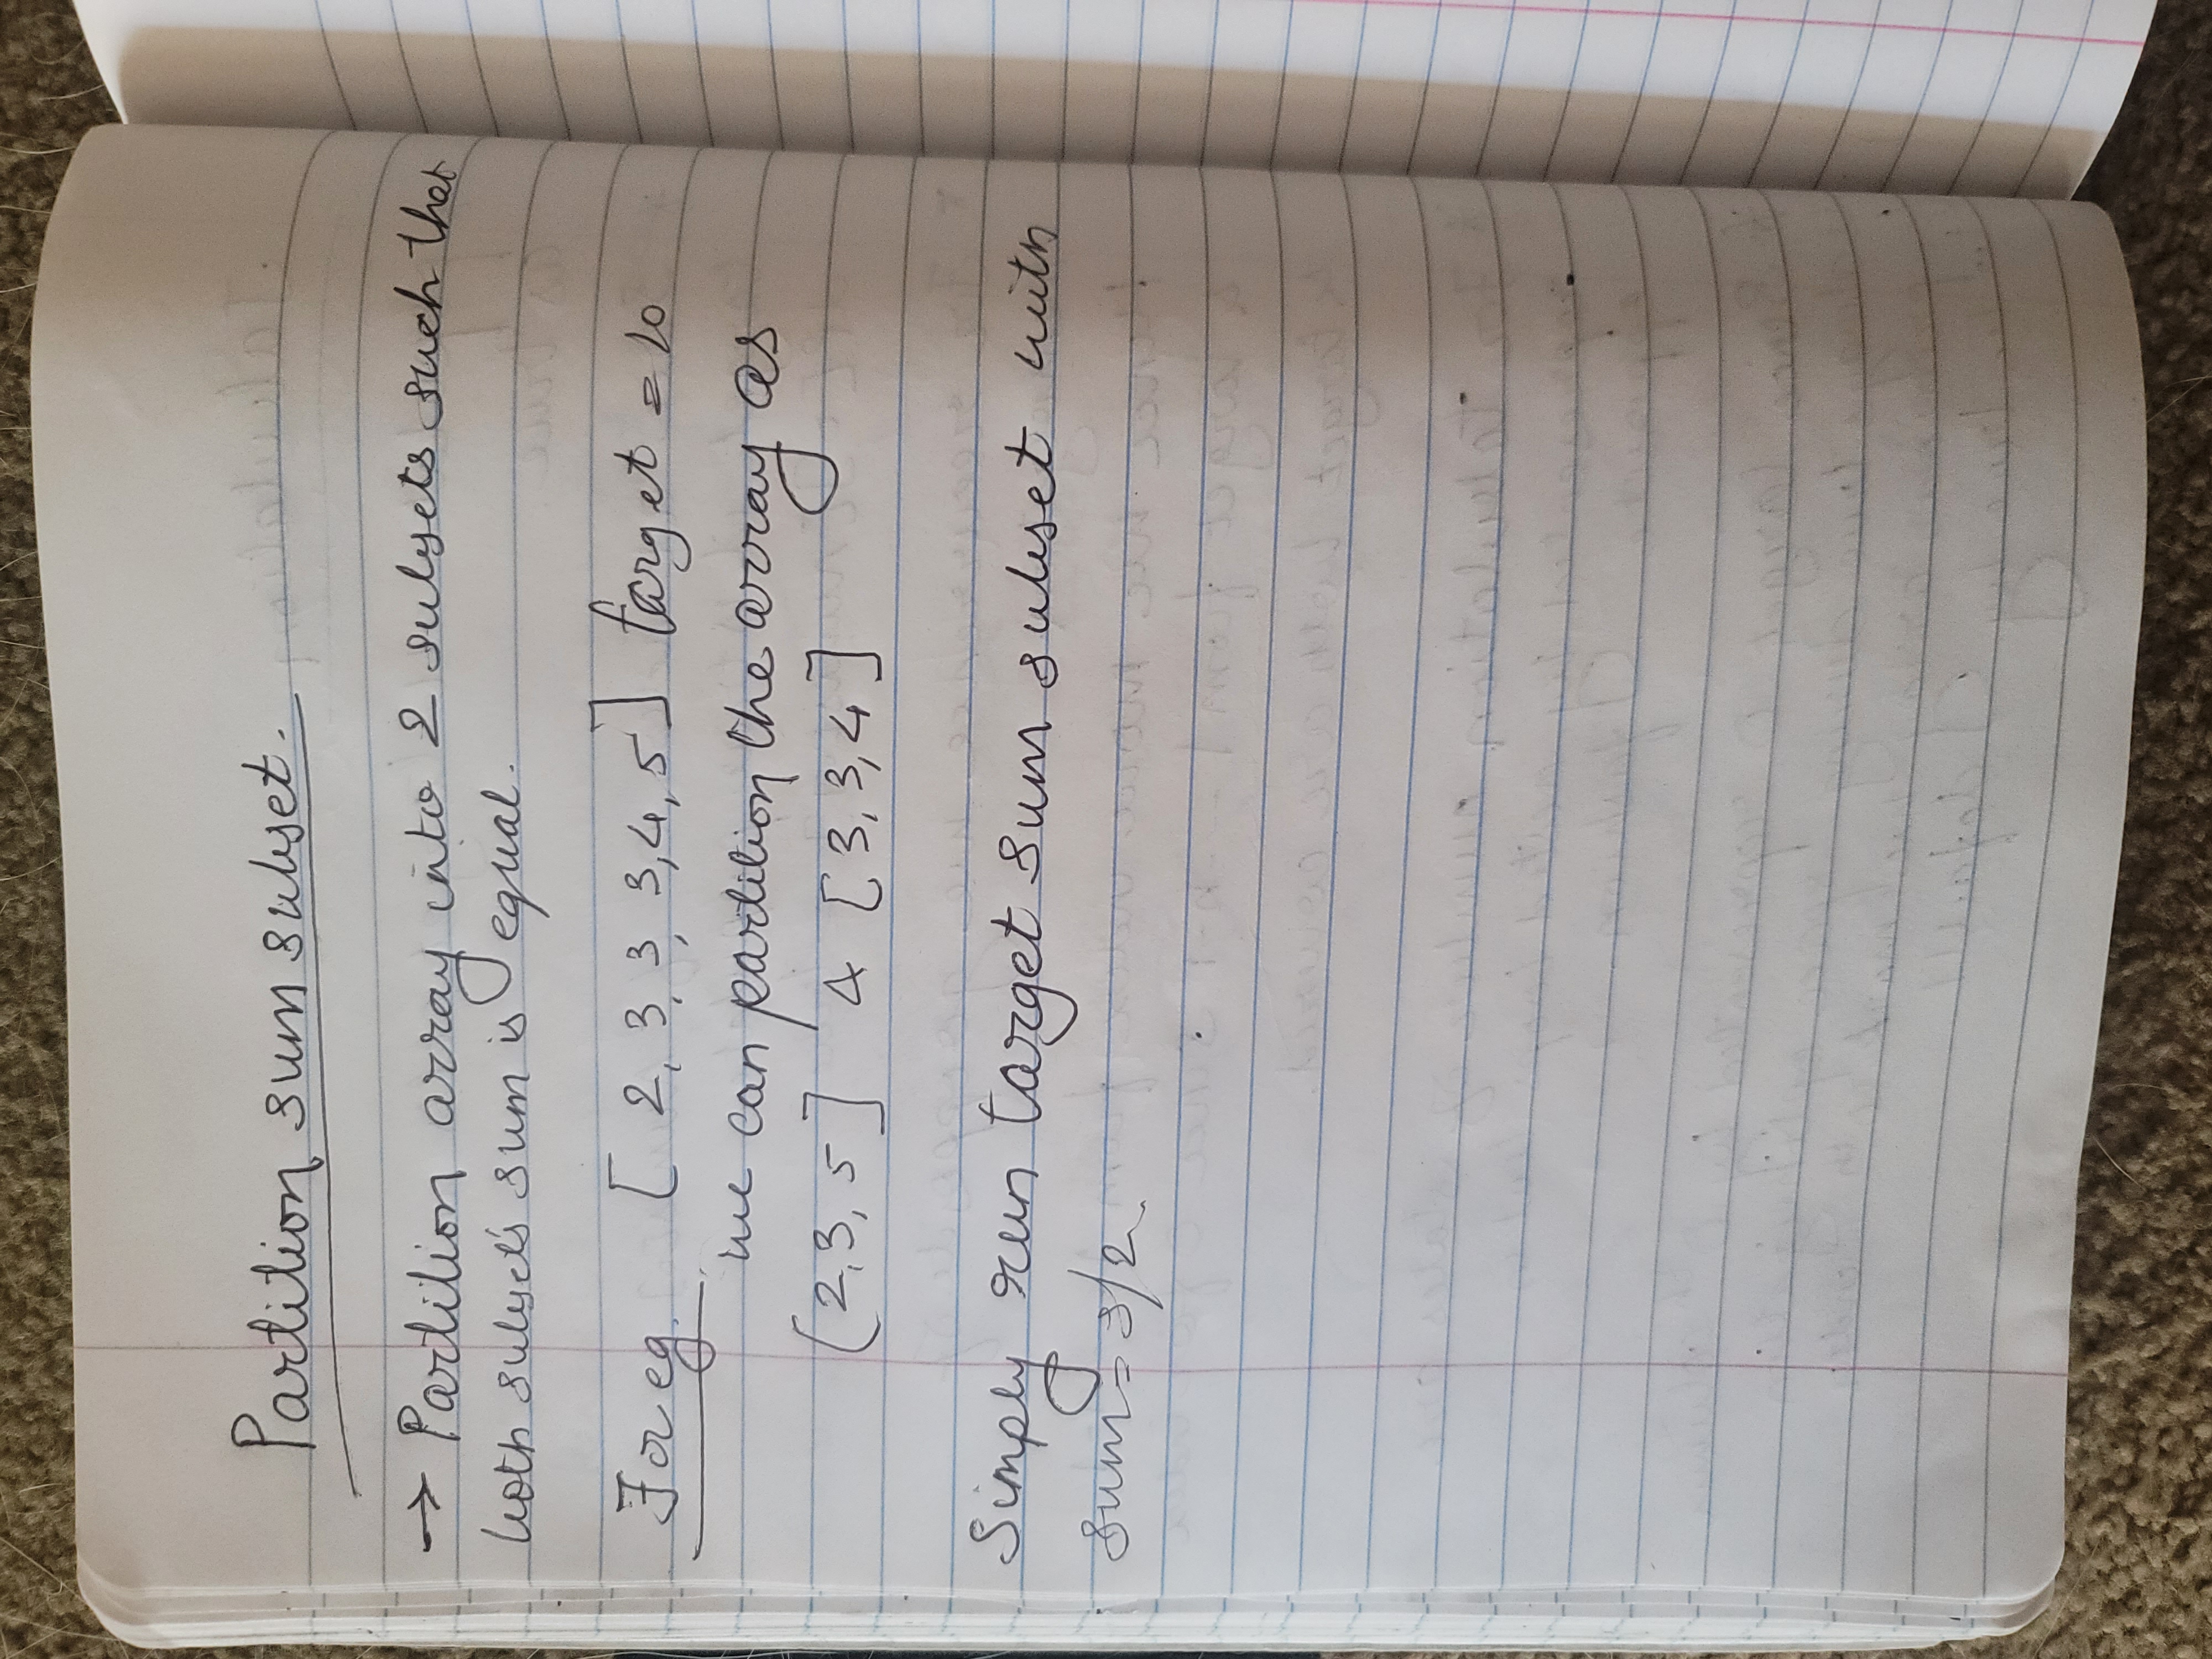 Partition sum subset.
→ Partition array into 2 subsets such that
both subset's sum is equal.
For eg. [2, 3, 3, 3, 4, 5] target = 10
we can partition the array as
[2, 3, 5] & [3, 3, 4]
Simply run target sum subset with
sum = s/2.